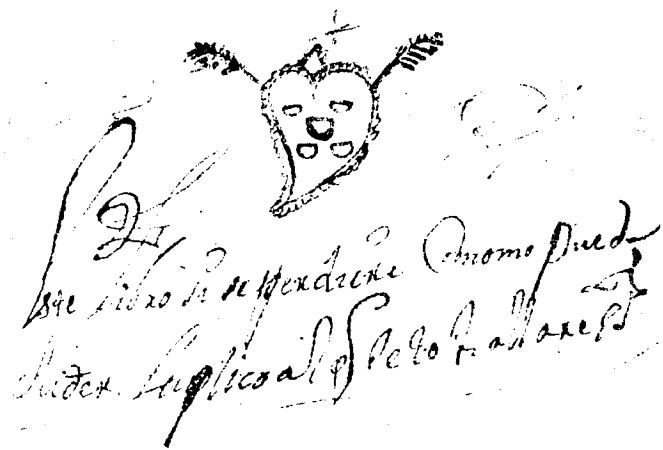 este libro si se perdiere Como puede
suplico al q se lo hallare